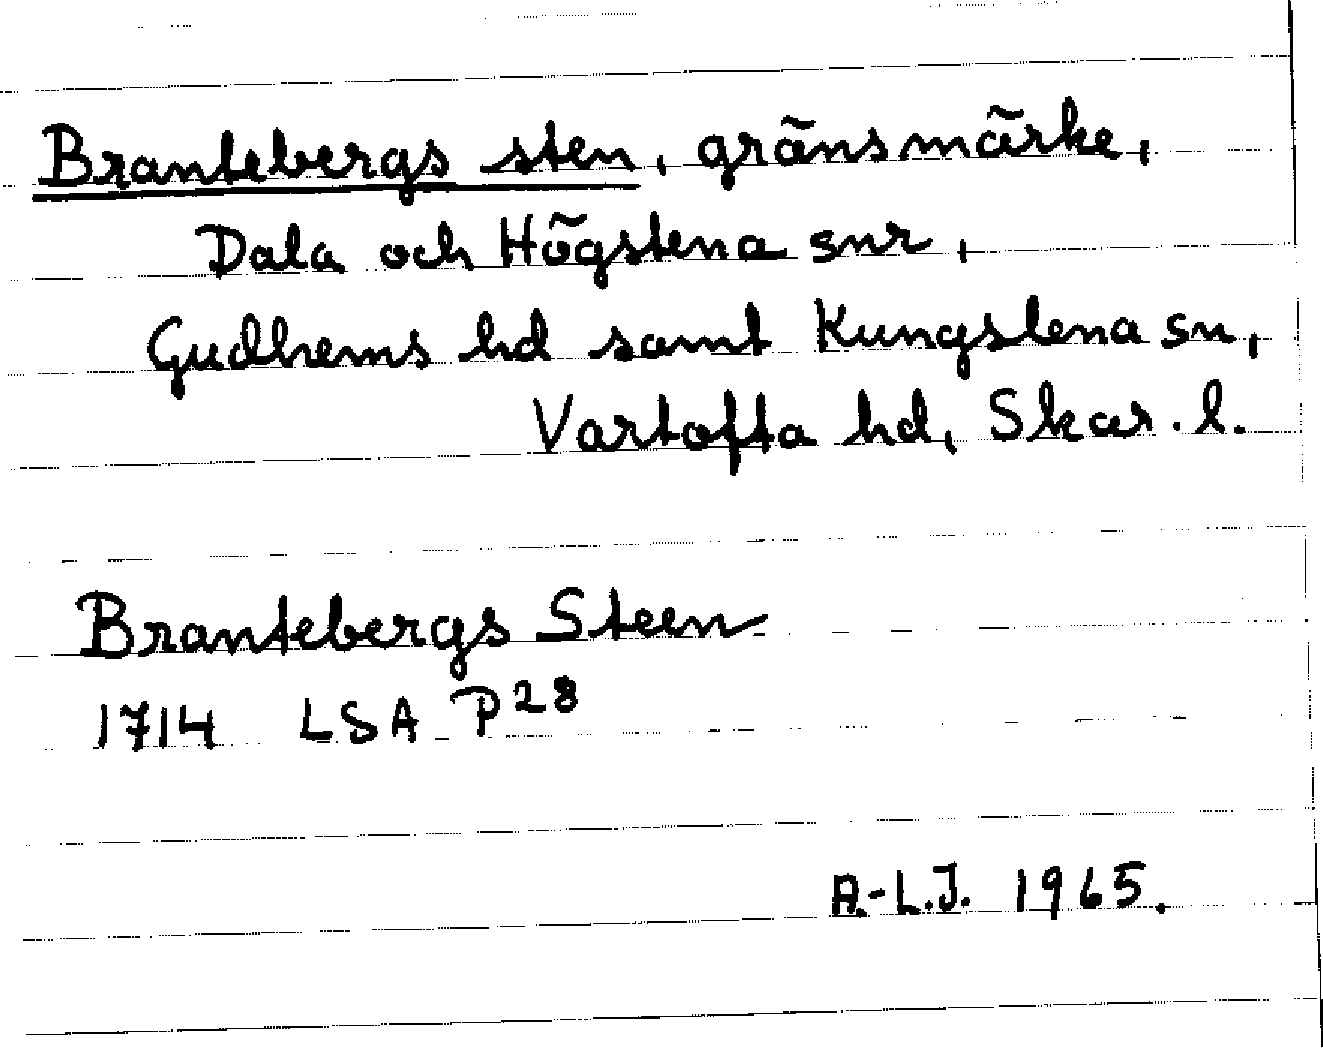 Brantebergs sten, gränsmärke,
Dala och Högstena snr,
Gudhems hd samt Kungslena sn,
Vartofta hd, Skar. l.
Brantebergs Steen
1714 LSA P28
A.-L.J. 1965.